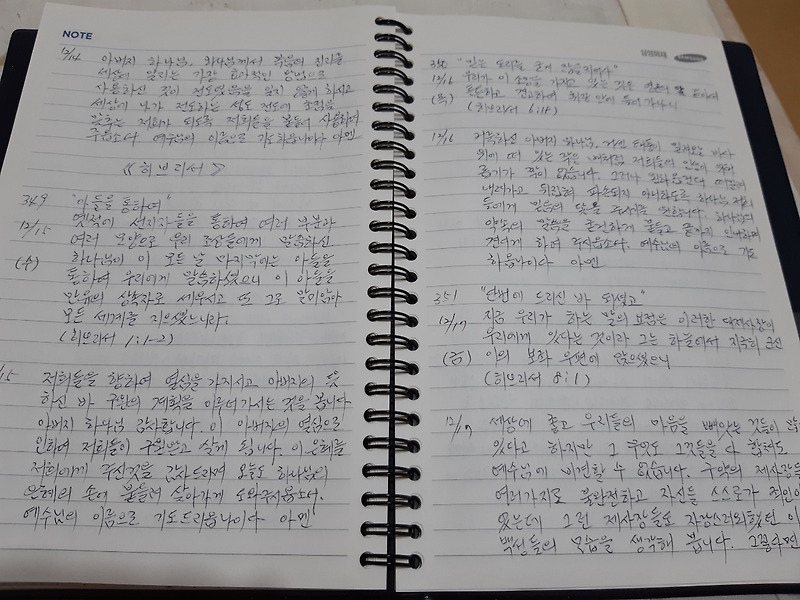 NOTE
12/14 아버지 하나님. 하나님께서 복음의 진리를
세상에 알리는 가장 효과적인 방법으로
사용하신 것이 전도였음을 잊지 않게 하시고
세상에 나가 전도하는
되도록 저희들을 붙들어 사용하여
주옵소서 예수님의 이름으로 기도하옵나이다 아멘
《히브리서》
349 "아들을 통하여"
12/15 옛적에 선지자들을 통하여 여러 부분과
여러 모양으로 우리 조상들에게 말씀하신
(수) 하나님이 이 모든 날 마지막에는 아들을
통하여 우리에게 말씀하셨으니 이 아들을
만유의 상속자로 세우시고 또 그로 말미암아
모든 세계를 지으셨느니라.
(히브리서 1:1-2)
15 저희들을 향하여 열심을 가지시고 아버지의 뜻
하신 바 구원의 계획을 이루어가시는 것을 봅니다
아버지 하나님 감사합니다. 이 아버지의 열심으로
인하여 저희들이 구원받고 살게 됩니다. 이 은혜를
저희에게 주신것을 감사드리며 오늘도 하나님의
은혜의 손에 붙들려 살아가게 도와주시옵소서.
예수님의 이름으로 기도드리옵나이다 아멘
삼성화재 SAMSUNG
350 "믿는 도리를 굳게 잡을지어다"
12/16 우리가 이 소망을 가지고 있는 것은 영혼의 닻 같아서
(목) 튼튼하고 견고하여 휘장 안에 들어 가나니
(히브리서 6:19)
12/16 거룩하신 아버지 하나님. 거센 태풍이 일어나는 바다
위에 떠 있는 작은 배처럼 저희들의 인생이
끊기가 짝이 없습니다. 그러나
내려가고 뒤집혀 파손되지 아니하도록 하나님 저희
들에게 말씀의 닻을 주시기를 원합니다. 하나님의
약속의 말씀을 굳건하게 붙들고 끝까지 인내하며
견디게 하여 주시옵소서. 예수님의 이름으로 기도
하옵나이다 아멘
351 "단번에 드리신 바 되셨고"
12/17 지금 우리가 하는 말의 요점은 이러한 대제사장이
우리에게 있다는 것이라 그는 하늘에서 지극히 크신
(금) 이의 보좌 우편에 앉으셨으니
(히브리서 8:1)
12/17 세상에 좋고 우리들의 마음을 빼앗는 것들이
있다고 하지만 그 무엇도 그것들을 다 합쳐도
예수님에 비견할 수 없습니다. 구약의 제사장들
여러가지로 불완전하고 자신들 스스로가 죄인이
었는데 그런 제사장들도 자랑스러워했던 이
백성들의 모습을 생각해 봅니다. 그렇다면